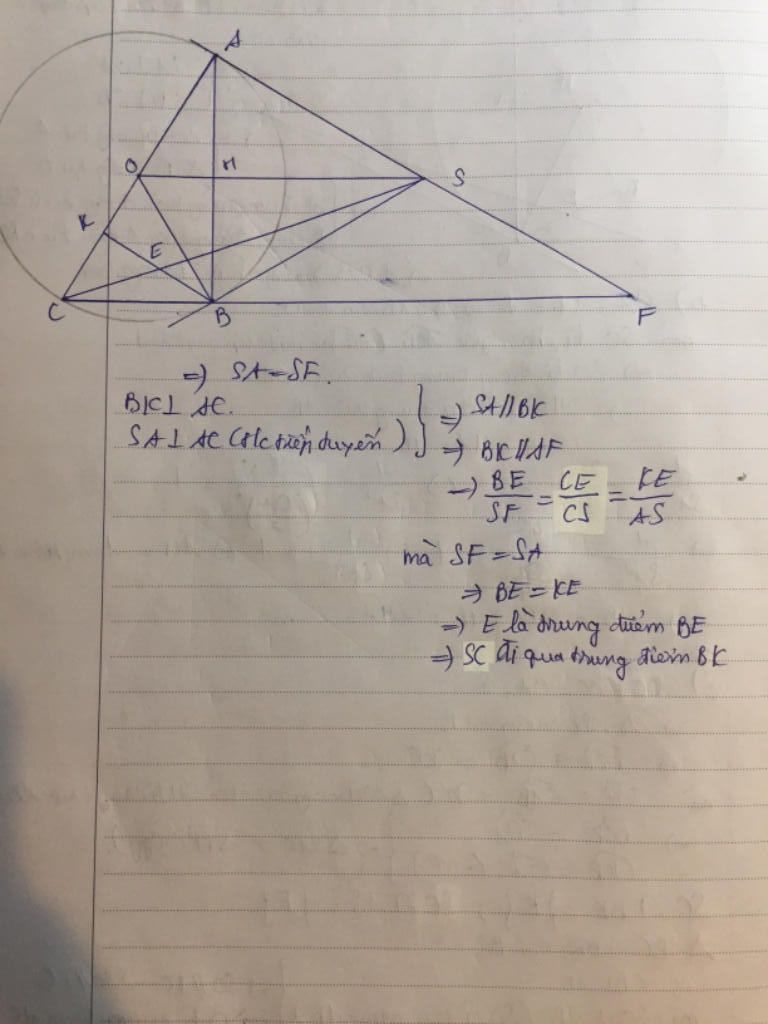 A
O
H
S
K
E
C
B
F
=> SA = SF.
BK ⊥ AC.
SA ⊥ AC (t/c tiếp tuyến) } => SA // BK
=> BK // AF
=> BE/SF = CE/CS = KE/AS
mà SF = SA
=> BE = KE
=> E là trung điểm BE
=> SC đi qua trung điểm BK